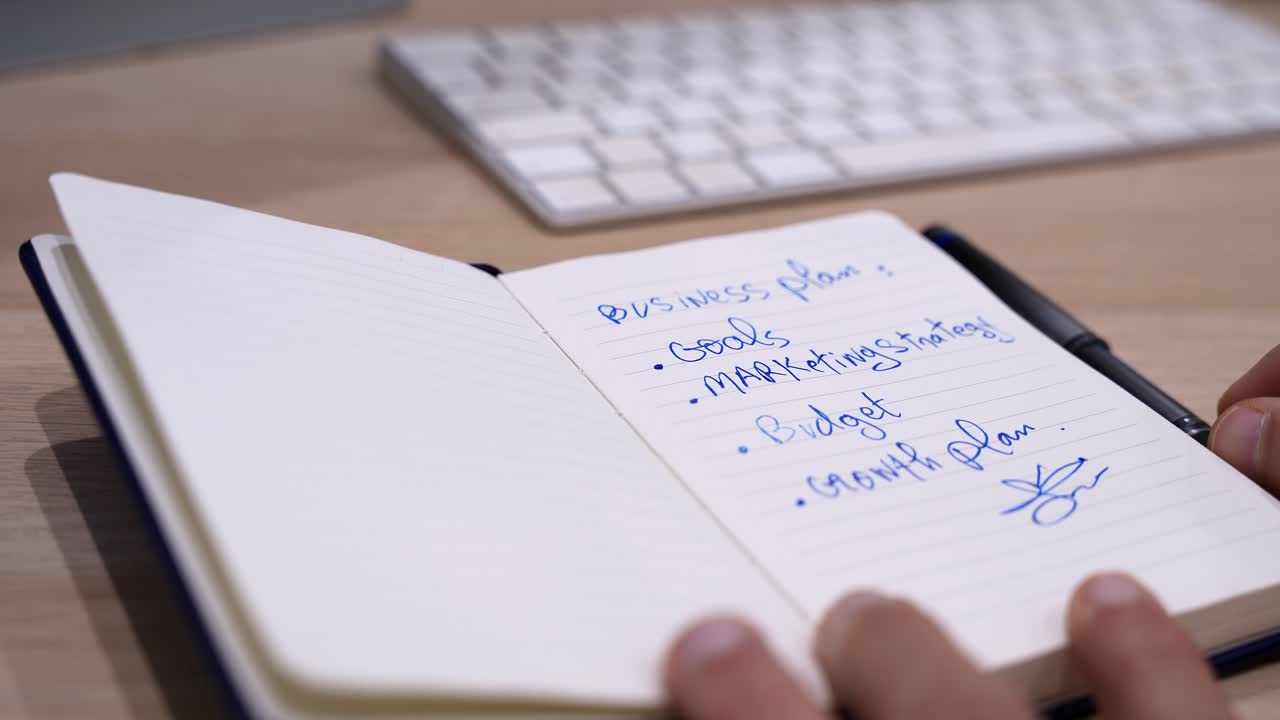 Business plan :
• Goals
• MARKeting strategy
• Budget
• Growth plan .